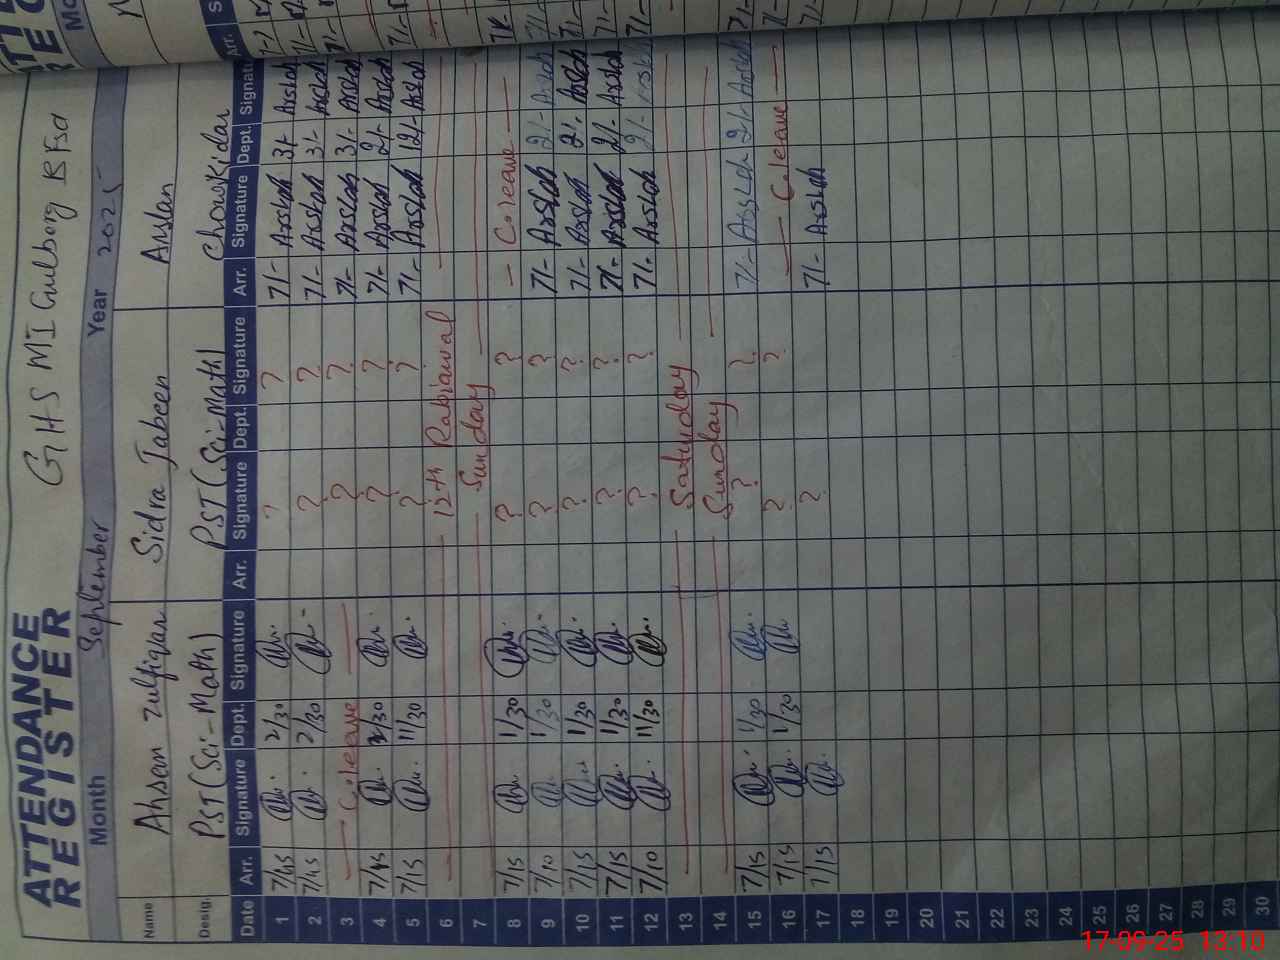 ATTENDANCE REGISTER GHS MI Gulborg B Fsd
Month September Year 2025
Name Ahsan Zulfiqar Sidra Jabeen Arslan
Desig. PST(Sci-Math) PST(Sci-Math) Chowkidar
Date Arr. Signature Dept. Signature Arr. Signature Dept. Signature Arr. Signature Dept. Signature
1 7/45 2/30 ? ? 7/- Arslah 3/- Arslah
2 7/45 2/30 ? ? 7/- Arslah 3/- Arslah
3 C.leave ? ? 7/- Arslah 3/- Arslah
4 7/45 2/30 ? ? 7/- Arslah 2/- Arslah
5 7/15 11/30 ? ? 7/- Arslah 12/- Arslah
6 12th Rabiawal
7 Sunday
8 7/15 1/30 ? ? C.leave
9 7/10 1/30 ? ? 7/- Arslah 2/- Arslah
10 7/15 1/30 ? ? 7/- Arslah 2/- Arslah
11 7/15 1/30 ? ? 7/- Arslah 2/- Arslah
12 7/10 11/30 ? ? 7/- Arslah 2/- Arslah
13 Saturday
14 Sunday
15 7/15 1/30 ? ? 7/- Arslah 2/- Arslah
16 7/15 1/30 ? ? C.leave
17 7/15 ? 7/- Arslah
18
19
20
21
22
23
24
25
26
27
28
29
30
17-09-25 13:10